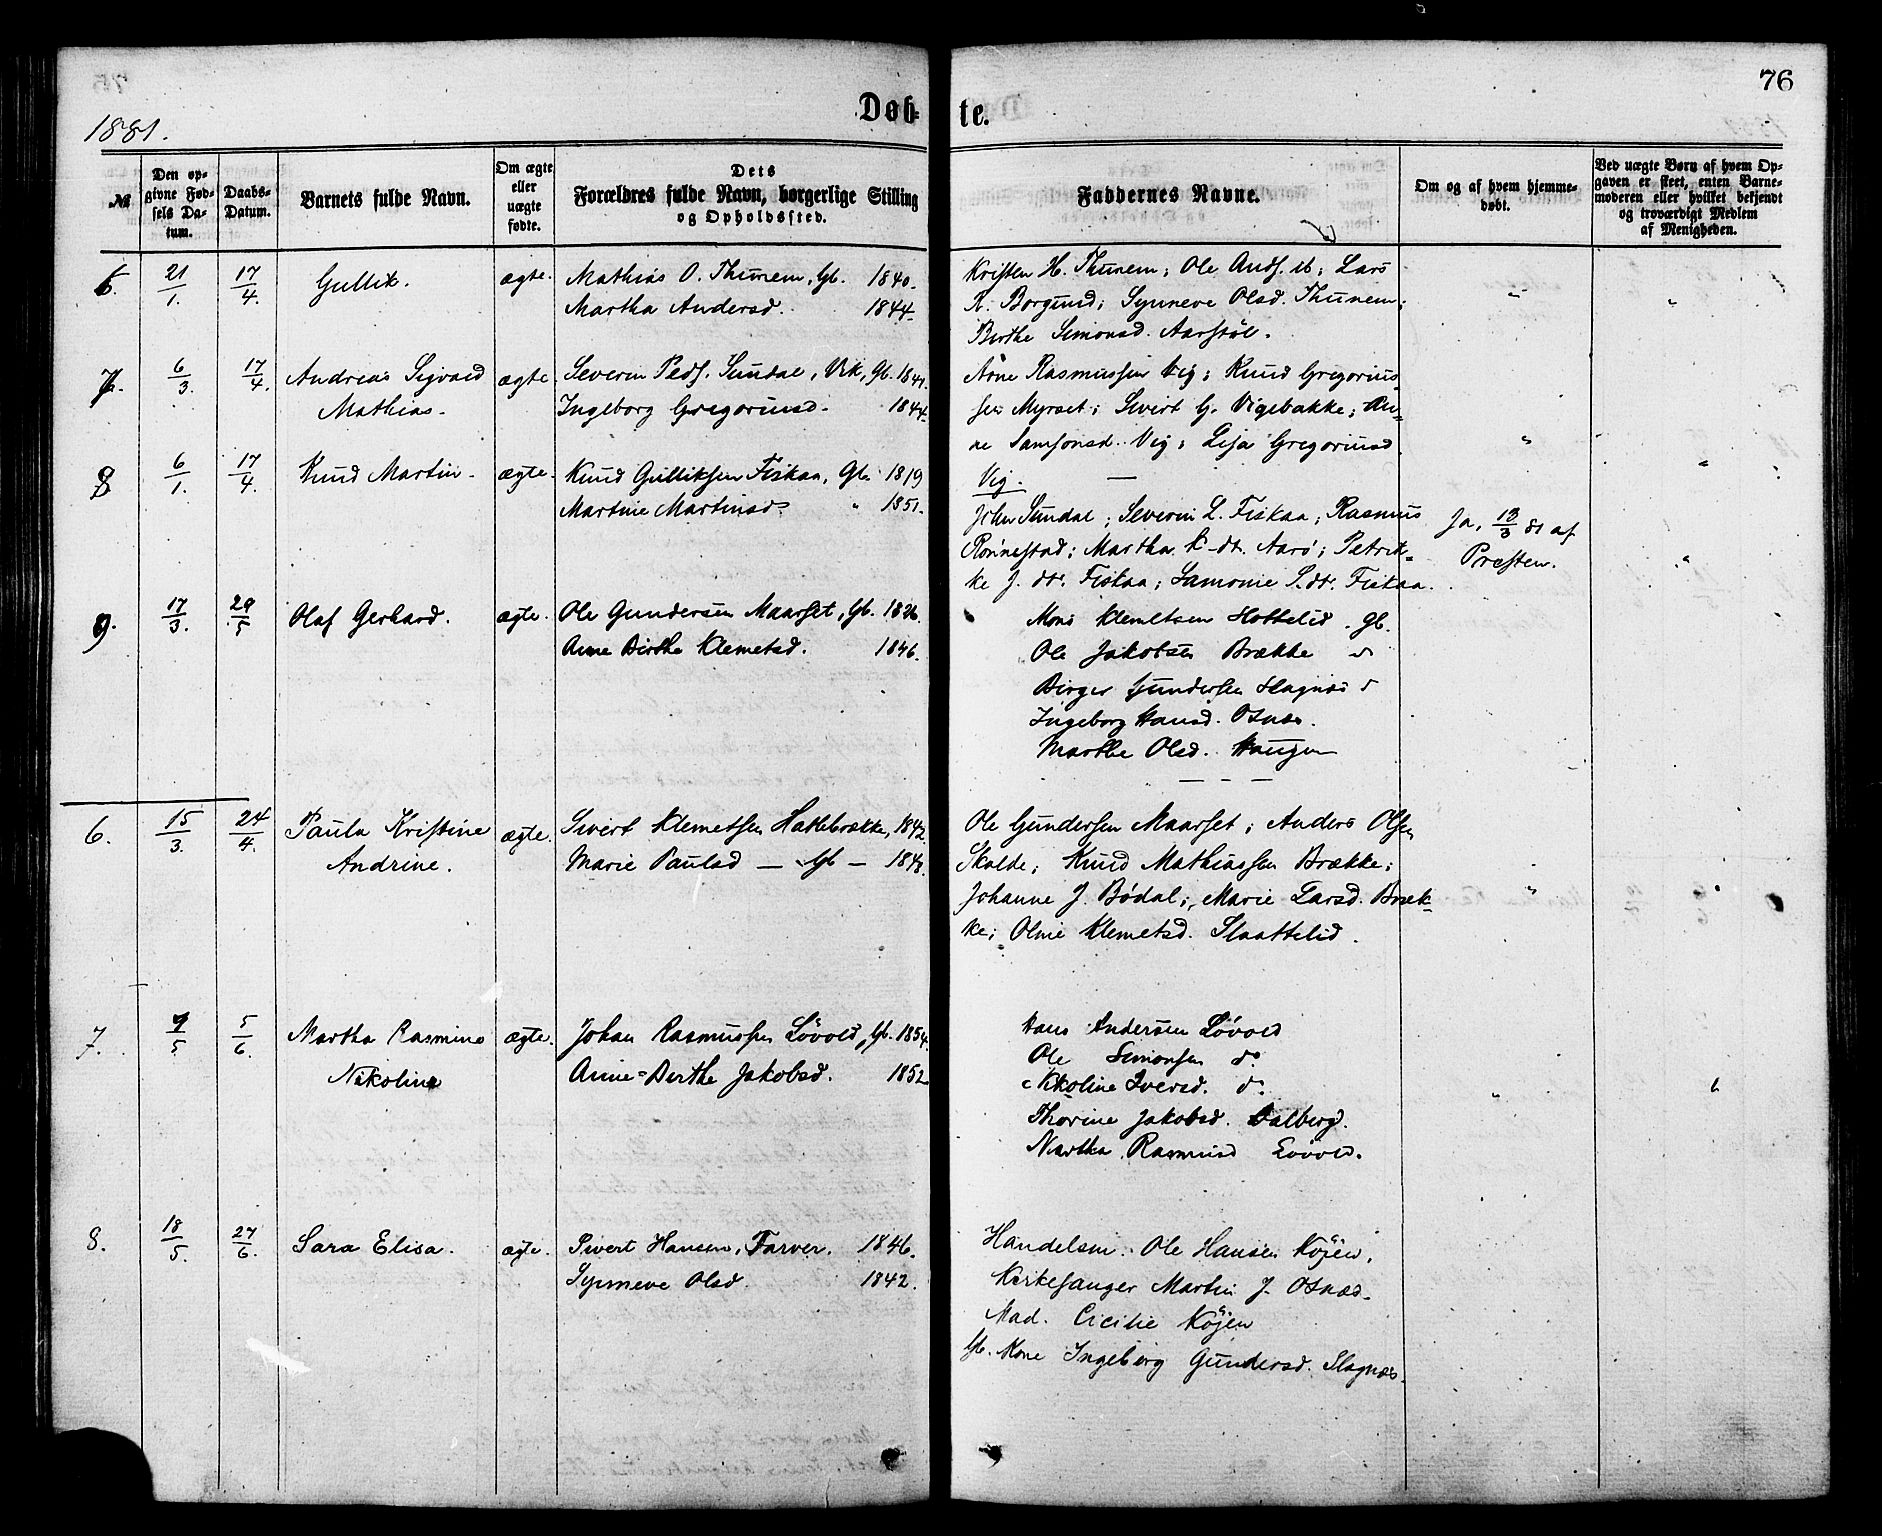 76
1881.
Døb-
te.
№
Den op-
givne Fød-
sels Da-
tum.
Daabs-
Datum.
Barnets fulde Navn.
Om ægte
eller
uægte
fødte.
Dets
Forældres fulde Navn, borgerlige Stilling
og Opholdssted.
Faddernes Navne.
Om og af hvem hjemme-
døbt.
Ved uægte Børn af hvem Op-
gaven er skeet, enten Barne-
moderen eller hvilket bekjendt
og troværdigt Medlem
af Menigheden.
6. 21/1. 17/4. Gullik. ægte. Mathias O. Thunem, Gb. 1840.
Martha Andersd. 1844.
Kristen H. Thunem; Ole Ands. ; Lars
Borgund; Synneve Olsd. Thunem;
Birthe Simonsd. Aarstöl.
7. 6/3. 17/4. Andreas Sigvald ægte Severin Peds. Sundal, Vik, Gb. 1841.
Mathias. Ingeborg Gregoriusd. 1844.
Arne Rasmussen Vig; Knud Gregorius-
sen Myrset; Sivert G. Vigebakke; An-
ne Samsonsd. Vig; Lisa Gregoriusd.
Vig. —
8 6/1. 17/4. Knud Martin. ægte. Knud Gulliksen Fiskaa, Gb. 1819
Martine Martinsd. " 1851.
John Sundal; Severin L. Fiskaa; Rasmus
Rönnestad; Martha K-dt. Aarö; Petrik-
ke J. dt. Fiskaa; Lamonie S. dt. Fiskaa.
Ja, 13/3 81 af
Præsten.
9. 17/3. 29/5 Olaf Gerhard. ægte. Ole Gundersen Maarset, Gb. 1826.
Anne Birthe Klemetsd. 1846.
Mons Klemetsen Hottelid. Gb.
Ole Jakobsen Brække
Birger Gundersen Slagnæs
Ingeborg Hansd. Osnæs.
Marthe Olsd. Haugen
— — —
6. 15/3. 24/4. Paula Kristine ægte. Sivert Klemetsen Hatlebrække, 1842.
Andrine. Marie Paulsd — Gb — 1848.
Ole Gundersen Maarset; Anders Olsen
Skolde; Knud Mathiassen Brække;
Johanne J. Bödal; Marie Larsd. Bræk-
ke; Oline Klemetsd. Slaattelid.
7. 9/5 5/6. Martha Rasmine ægte. Johan Rasmussen Lövold, Gb. 1854.
Nikoline Anne-Berthe Jakobsd. 1852
Hans Andersen Lövold
Ole Simonsen do
Nikoline Iversd. do
Thorine Jakobsd. Dalberg.
Martha Rasmusd Lövold.
8. 18/5. 27/6. Sara Elisa. ægte. Sivert Hansen, Farver. 1846.
Synneve Olsd. 1842.
Handelsm. Ole Hansen Köjen,
Kirkesanger Martin J. Osnæs.
Mad. Cicilie Köjen
Gb. Kone Ingeborg Gundersd. Slagnæs.